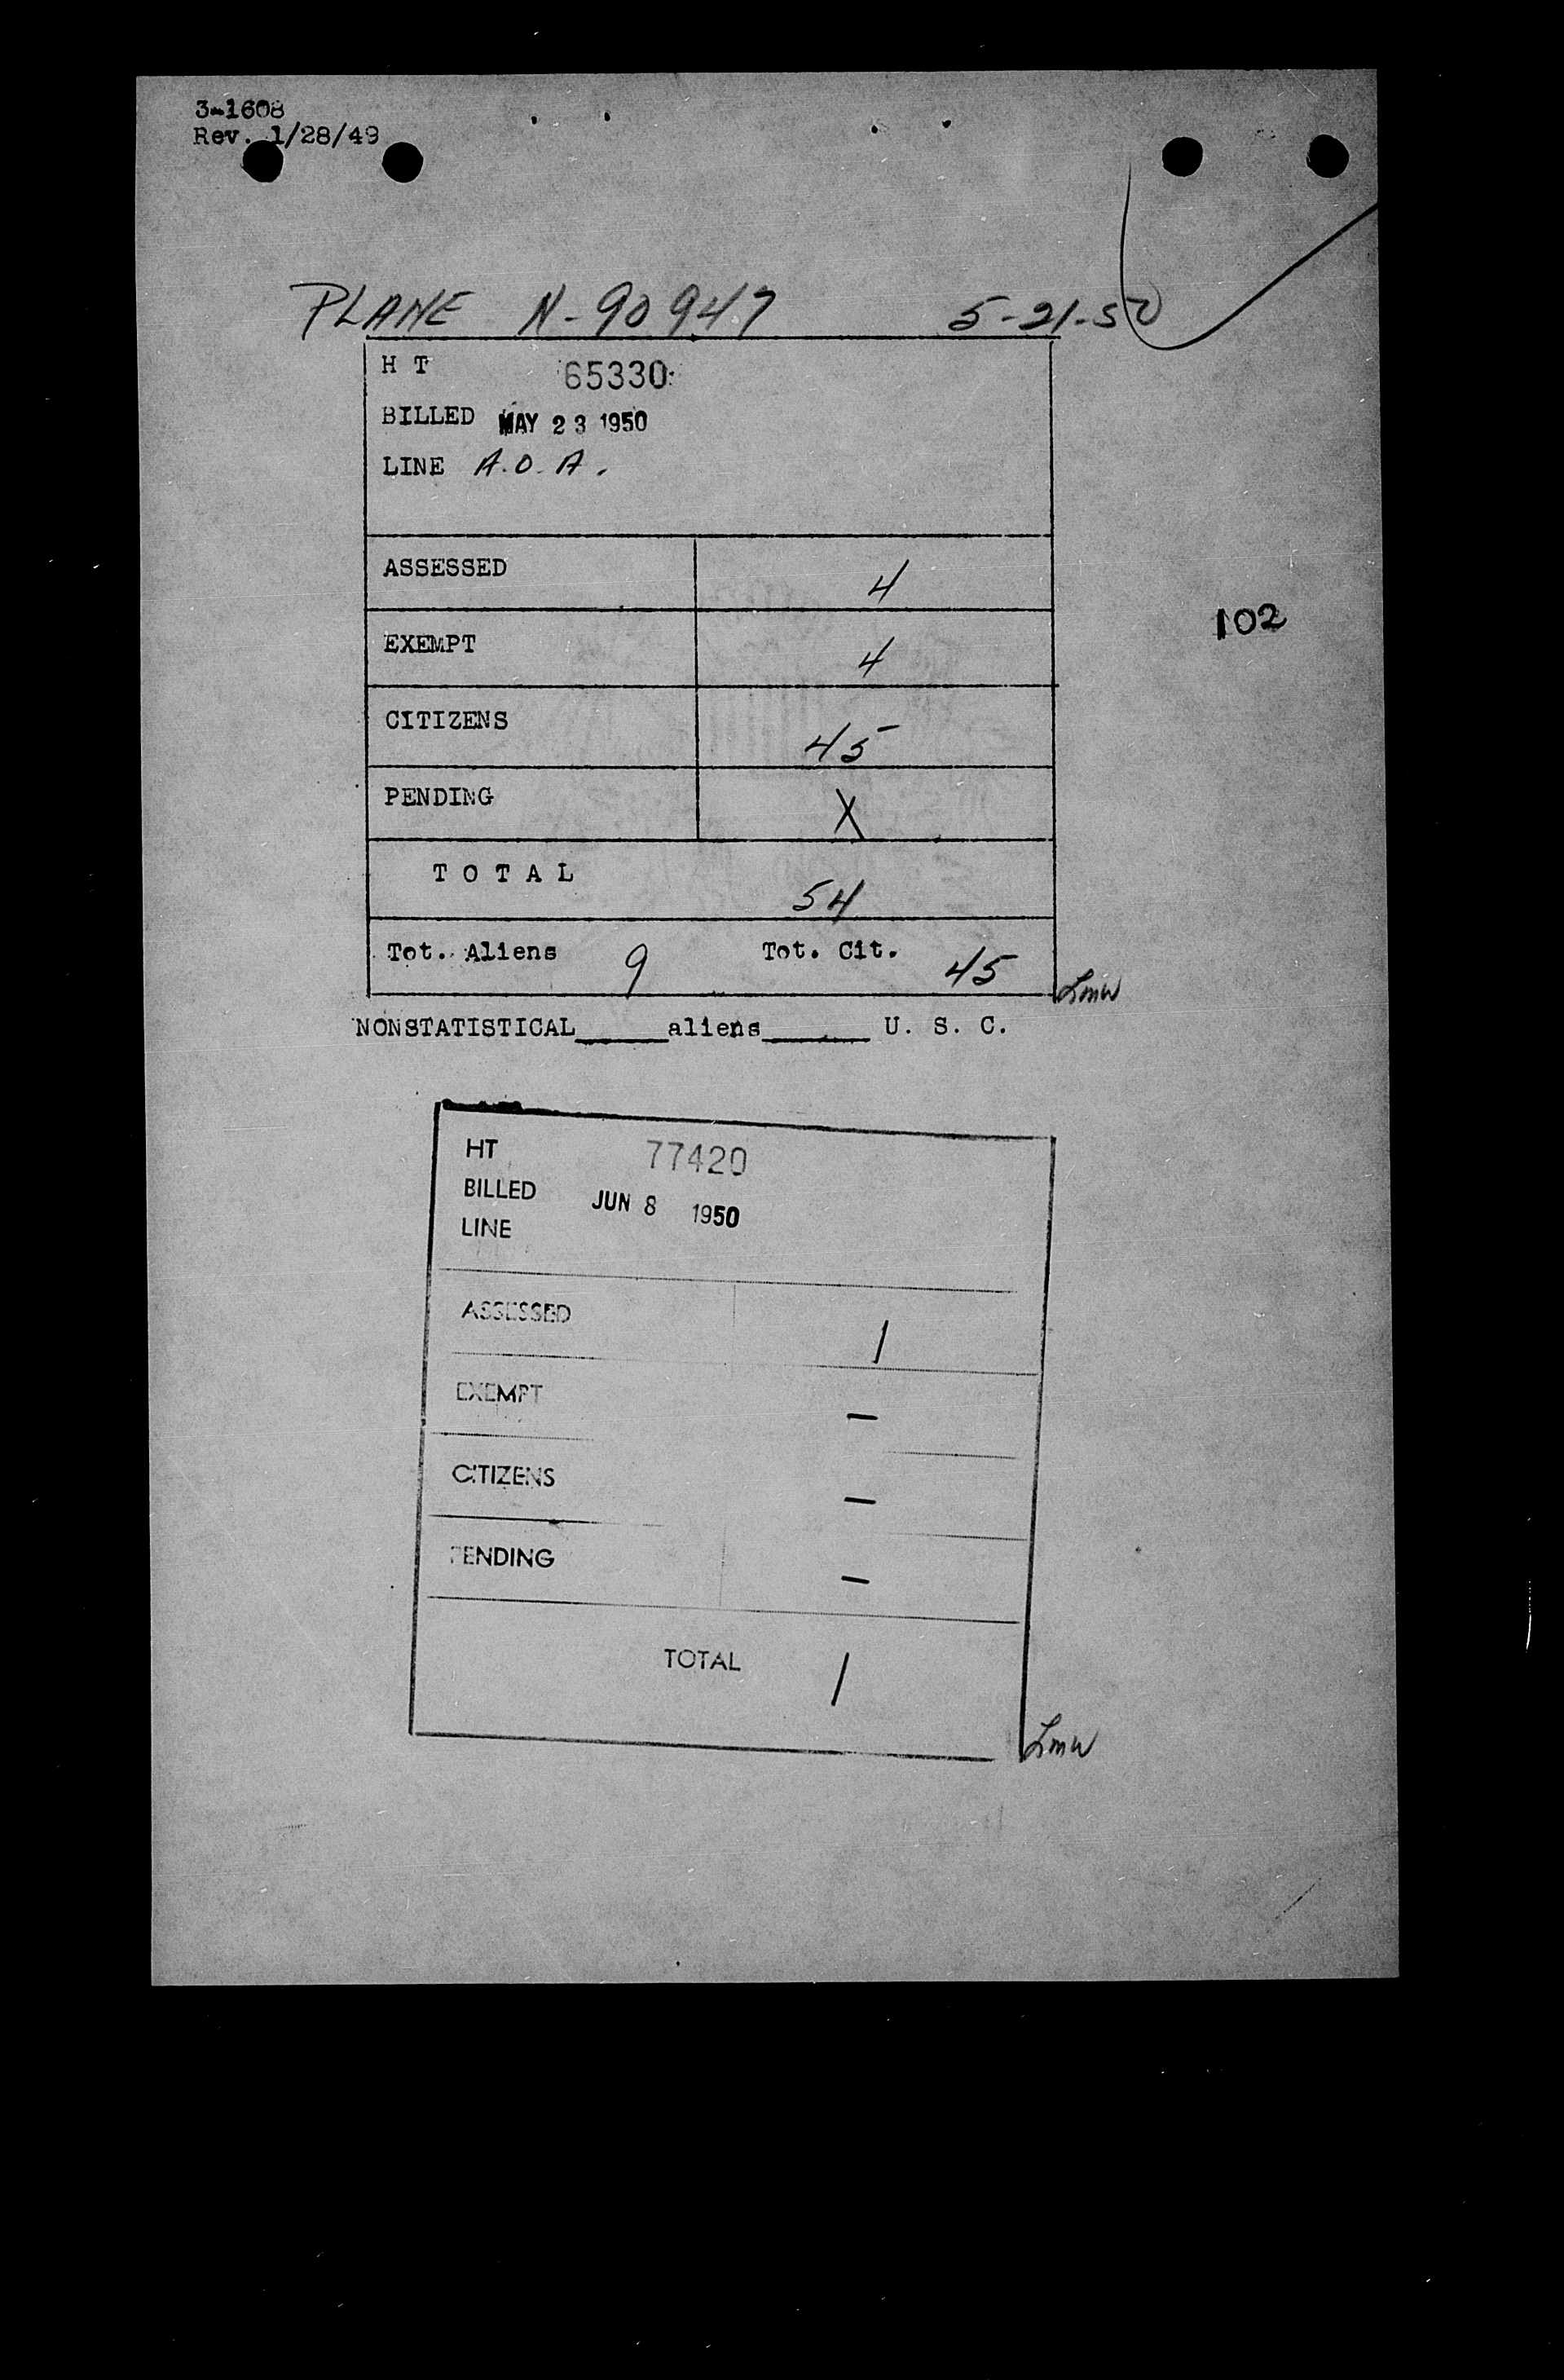 3-1608
Rev. 1/28/49
PLANE N-90947 5-21-50
H T 65330
BILLED MAY 23 1950
LINE A.O.A.
ASSESSED 4
102
EXEMPT 4
CITIZENS 45
PENDING X
TOTAL 54
Tot. Aliens 9 Tot. Cit. 45
Lmw
NONSTATISTICAL_____aliens______ U. S. C.
HT 77420
BILLED JUN 8 1950
LINE
ASSESSED 1
EXEMPT –
CITIZENS –
PENDING –
TOTAL 1
Lmw